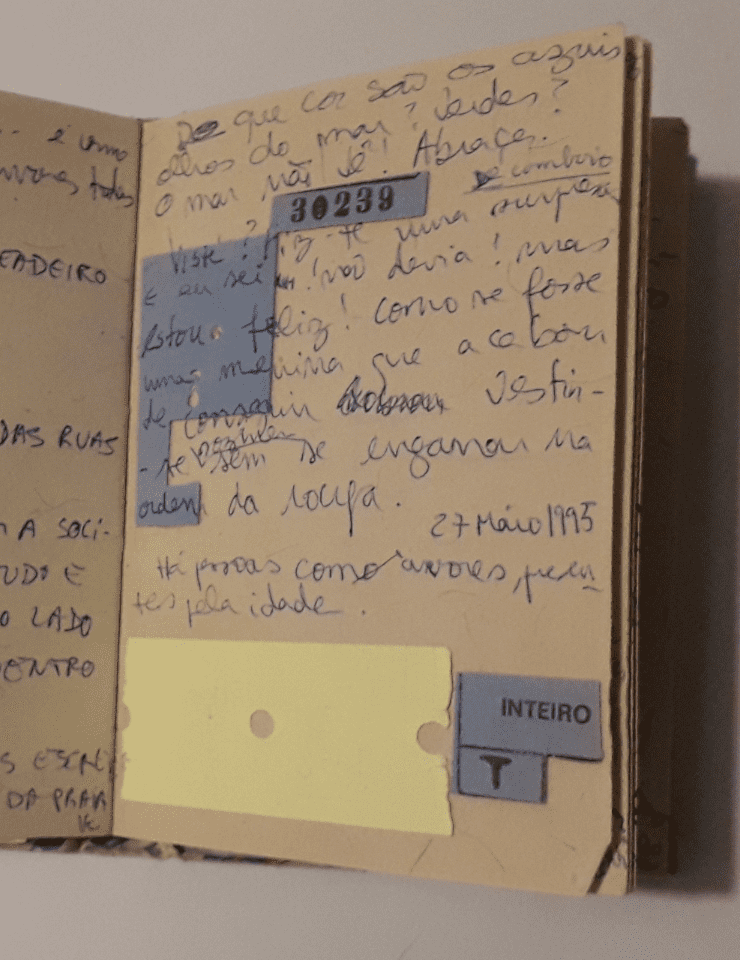 ... é como
árvores todas
EADEIRO
DAS RUAS
A SOCI-
TUDO E
O LADO
DENTRO
S ESCRE
DA PRAR
De que cor são os azuis
olhos do mar? Verdes?
O mar não vê! Abraços.
De comboio
30239
Viste? Fiz-te uma surpresa
E eu sei! não devia! mas
Estou feliz! Como se fosse
uma menina que acabou
de conseguir vestir-
-se sozinha
sem se enganar na
ordem da roupa.
27 Maio 1995
Há pessoas como árvores,
tes pela idade.
INTEIRO
T